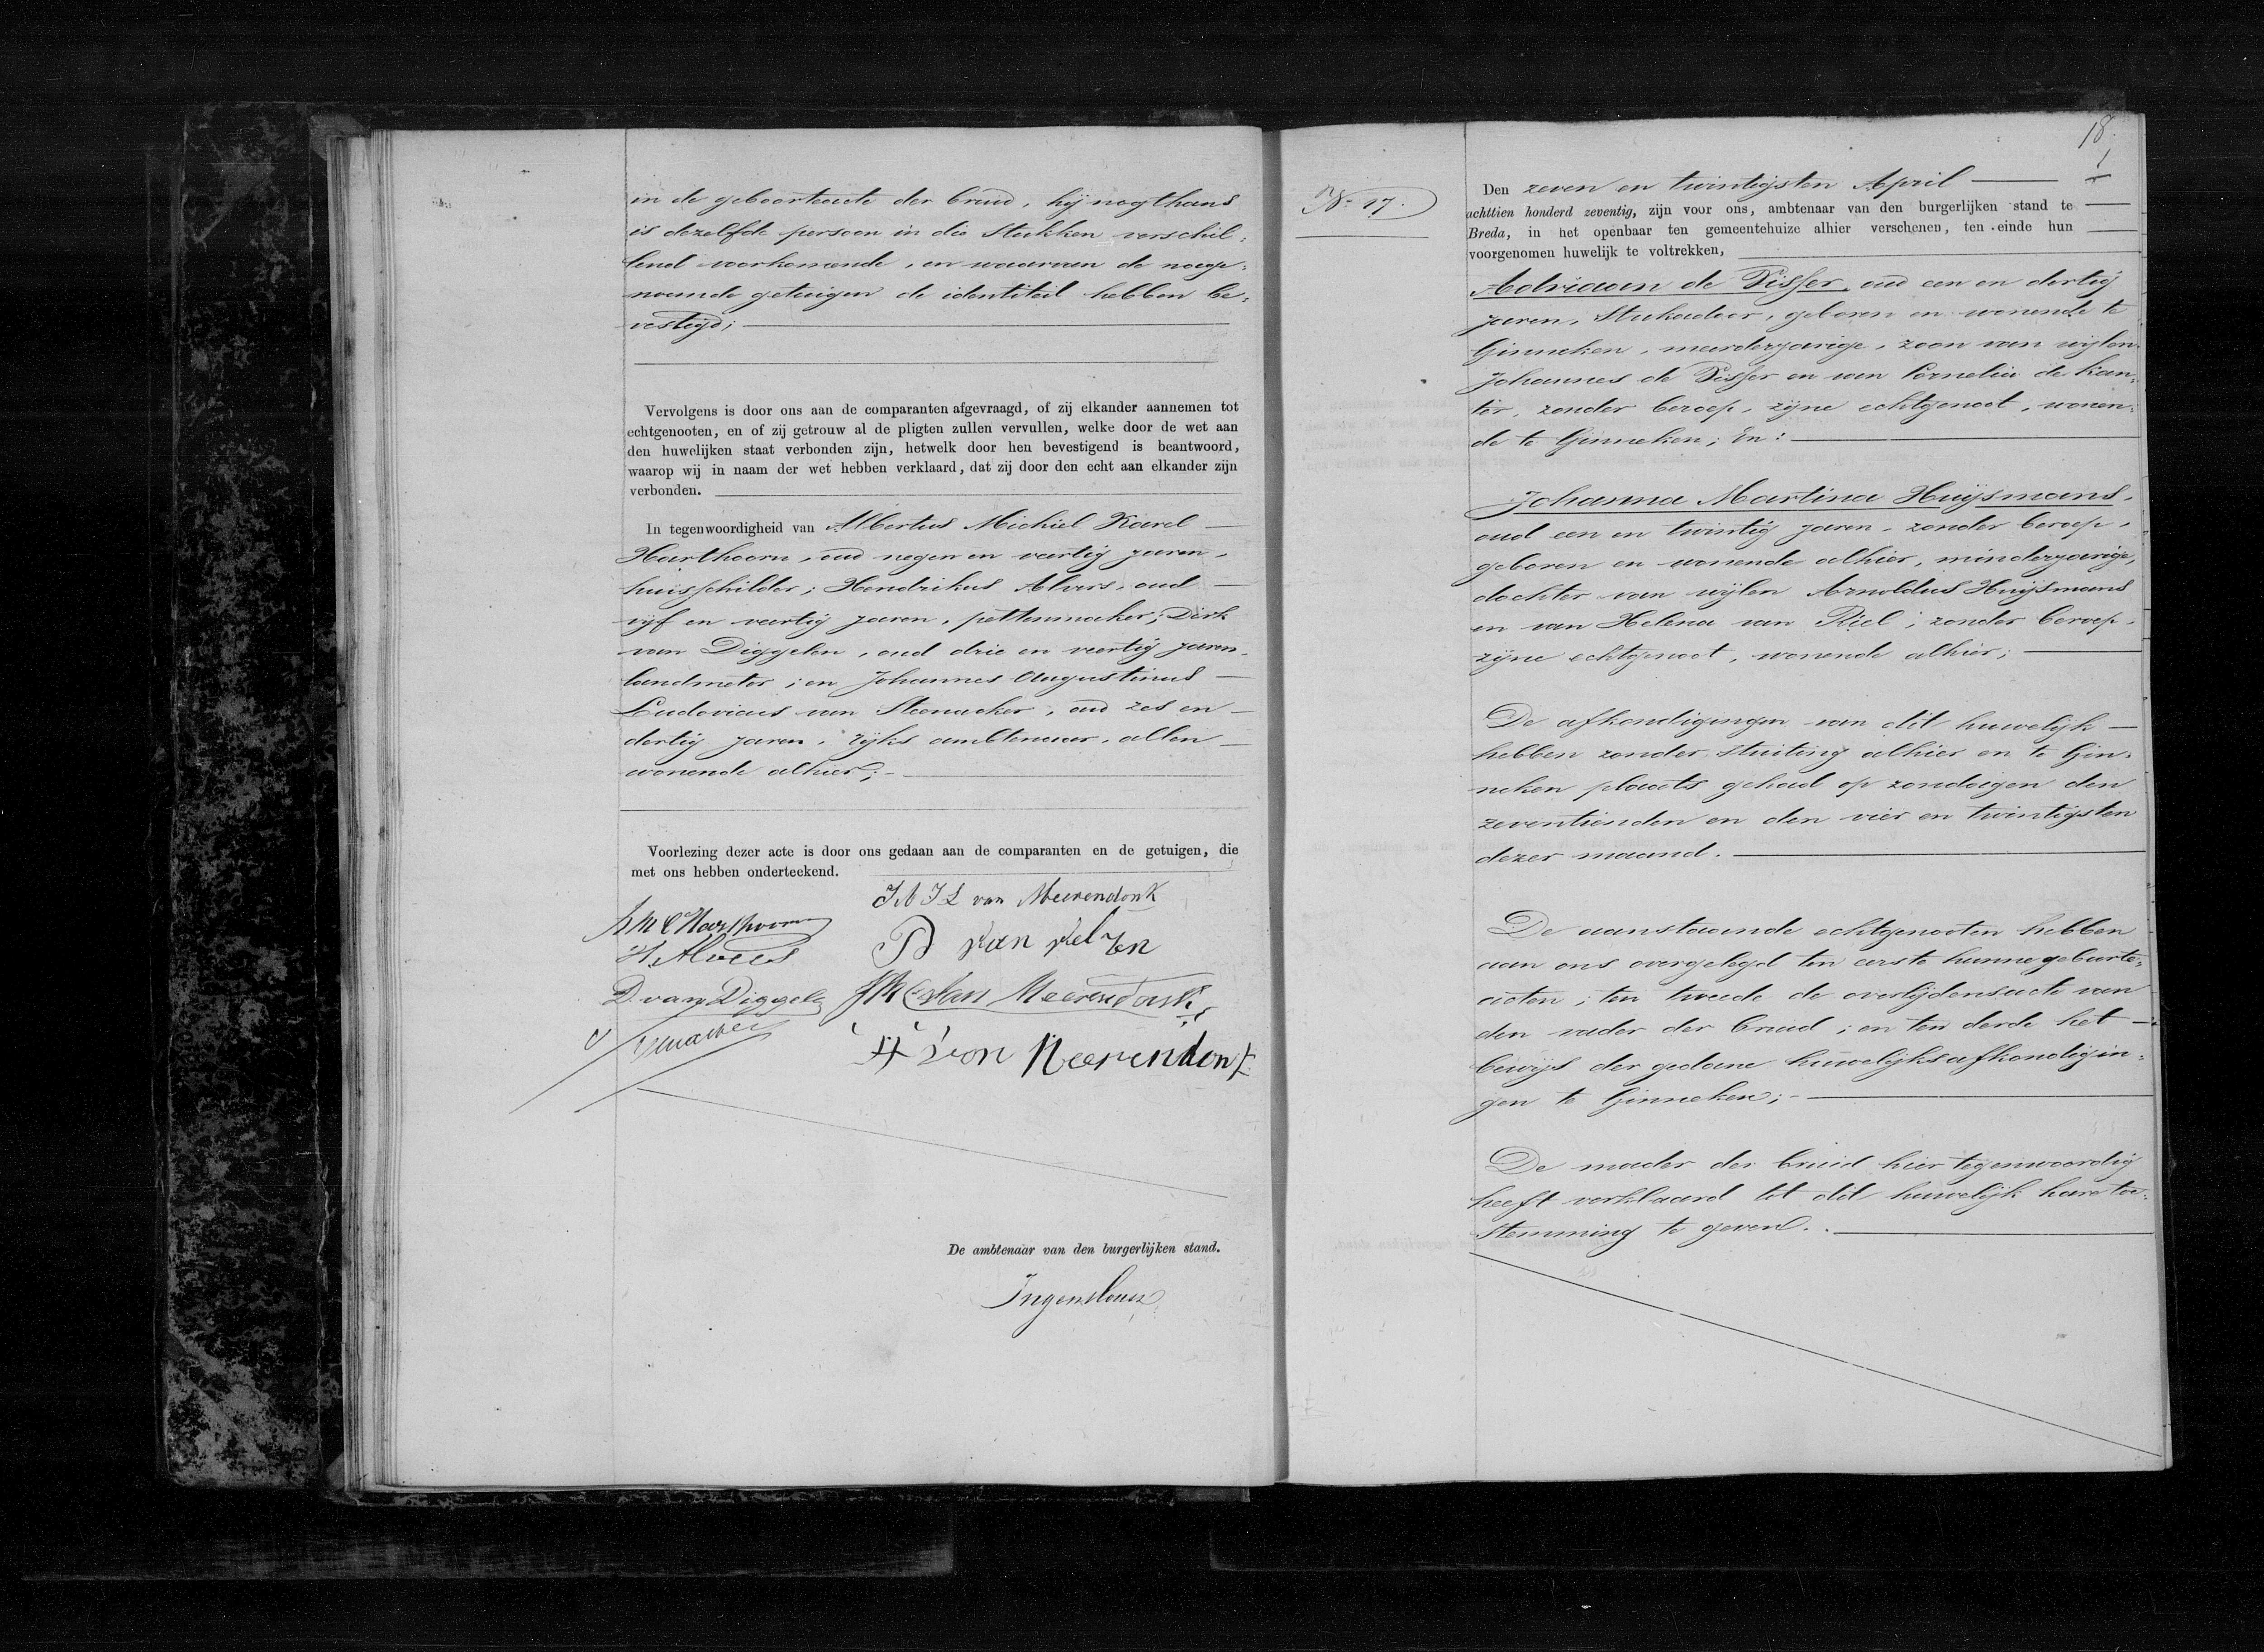 in de geboorteacte der bruid, hij nogthans
is dezelfde persoon in die stukken verschil=
lend voorkomende, en waarvan de noege=
noemde getuigen de identiteit hebben be=
vestigd;
Vervolgens is door ons aan de comparanten afgevraagd, of zij elkander aannemen tot
echtgenooten, en of zij getrouw al de pligten zullen vervullen, welke door de wet aan
den huwelijken staat verbonden zijn, hetwelk door hen bevestigend is beantwoord,
waarop wij in naam der wet hebben verklaard, dat zij door den echt aan elkander zijn
verbonden.
In tegenwoordigheid van Albertus Michiel Karel
Harthoorn, oud negen en veertig jaren,
huisschilder; Hendrikus Alvers, oud
vijf en veertig jaren, pettenmaker; Dirk
van Diggelen, oud drie en veertig jaren,
landmeter; en Johannes Augustinus
Ludovicus van Steenacker, oud zes en
dertig jaren, rijks ambtenaar, allen
wonende alhier;
Voorlezing dezer acte is door ons gedaan aan de comparanten en de getuigen, die
met ons hebben onderteekend.
van Meerendonk
H. Alvers
P van Velzen
D. van Diggele
van Meerendonk
van Meerendonk
De ambtenaar van den burgerlijken stand.
Ingenhousz
18
No 17.
Den zeven en twintigsten April
achttien honderd zeventig, zijn voor ons, ambtenaar van den burgerlijken stand te
Breda, in het openbaar ten gemeentehuize alhier verschenen, ten einde hun
voorgenomen huwelijk te voltrekken,
Adriaan de Visser, oud een en dertig
jaren, stukadoor, geboren en wonende te
Ginneken, meerderjarige, zoon van wijlen
Johannes de Visser en van Cornelia de Kan=
ter, zonder beroep, zijne echtgenoot, wonen=
de te Ginneken; En:
Johanna Martina Huijsmans,
oud een en twintig jaren, zonder beroep,
geboren en wonende alhier, minderjarige,
dochter van wijlen Arnoldus Huijsmans
en van Helena van Riel; zonder beroep,
zijne echtgenoot, wonende alhier;
De afkondigingen van dit huwelijk
hebben zonder stuiting alhier en te Gin=
neken plaats gehad op zondagen den
zeventienden en den vier en twintigsten
dezer maand.
De aanstaande echtgenooten hebben
aan ons overgelegd ten eerste hunne geboorte=
acten; ten tweede de overlijdensacte van
den vader der bruid; en ten derde het
bewijs der gedane huwelijksafkondigin=
gen te Ginneken;
De moeder der bruid hier tegenwoordig
heeft verklaard tot dit huwelijk hare toe=
stemming te geven.